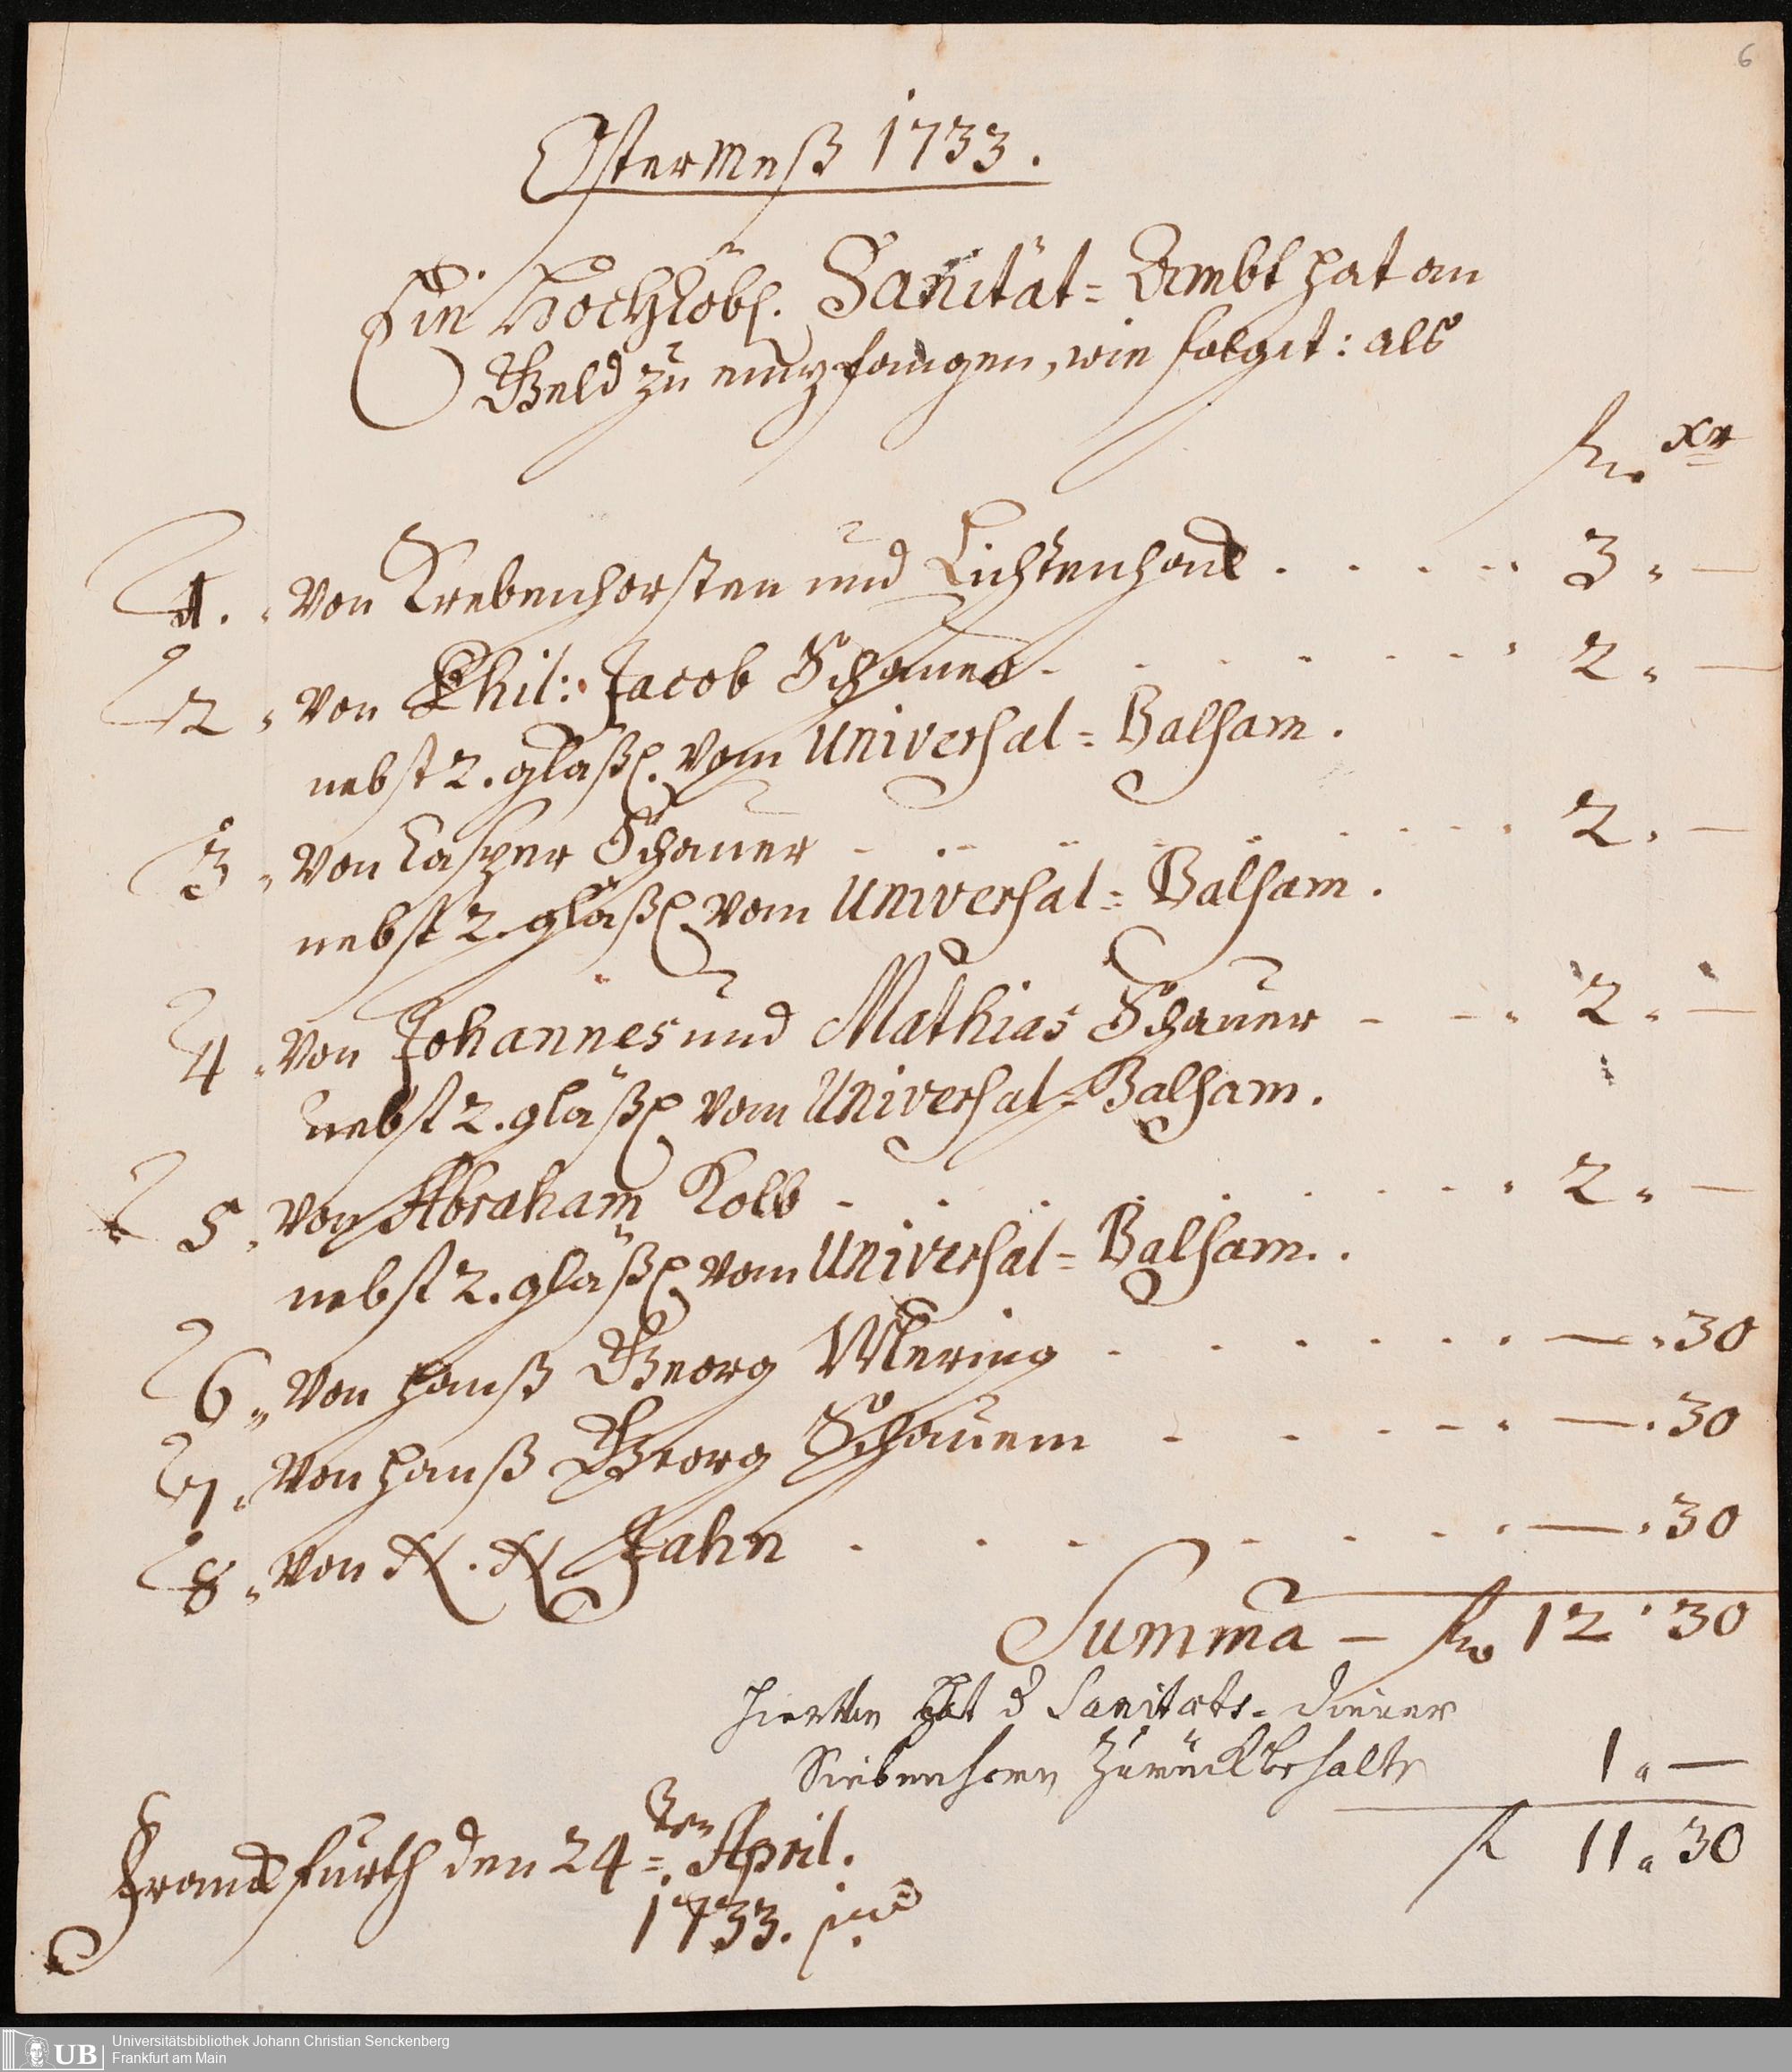 6
Ostermeß 1733.
Ein Hochlöbl. Sanität=Ambt hat an
Geld zu empfangen, wie folget: als
fl. xr
1. von Krebenhorsten und Lichtenhand . . . . . 3 " —
2 " von Phil: Jacob Schauer . . . . . . . 2 " —
nebst 2. gläßl. vom Universal=Balsam.
3 " von Casper Schauer . . . . . . . . 2 . —
nebst 2. gläßl. vom Universal=Balsam.
4 " von Johannes und Mathias Schauer - - " 2 " —
nebst 2. gläßl. vom Universal=Balsam.
5 " von Abraham Kolb . . . . . . . . 2 " —
nebst 2. gläßl. vom Universal=Balsam.
6 " von Hanß Georg Mering . . . . . . — " 30
7 " von Hanß Georg Schauern . . . . . — . 30
8 " von N. N. Jahn . . . . . . . — " 30
Summa — fl. 12 " 30
Hiervon hat d Sanitäts-Diener
Siebenhorn zurückbehalten 1 " —
fl 11 " 30
Franckfurth den 24ten April.
1733.
UB
Universitätsbibliothek Johann Christian Senckenberg
Frankfurt am Main